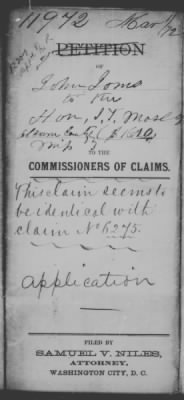 11972 Mar 1/72
PETITION
OF
John Jones
to the
Hon,
TO THE
COMMISSIONERS OF CLAIMS.
This claim seems to
be identical with
claim No 6275.
application
FILED BY
SAMUEL V. NILES,
ATTORNEY,
WASHINGTON CITY, D. C.